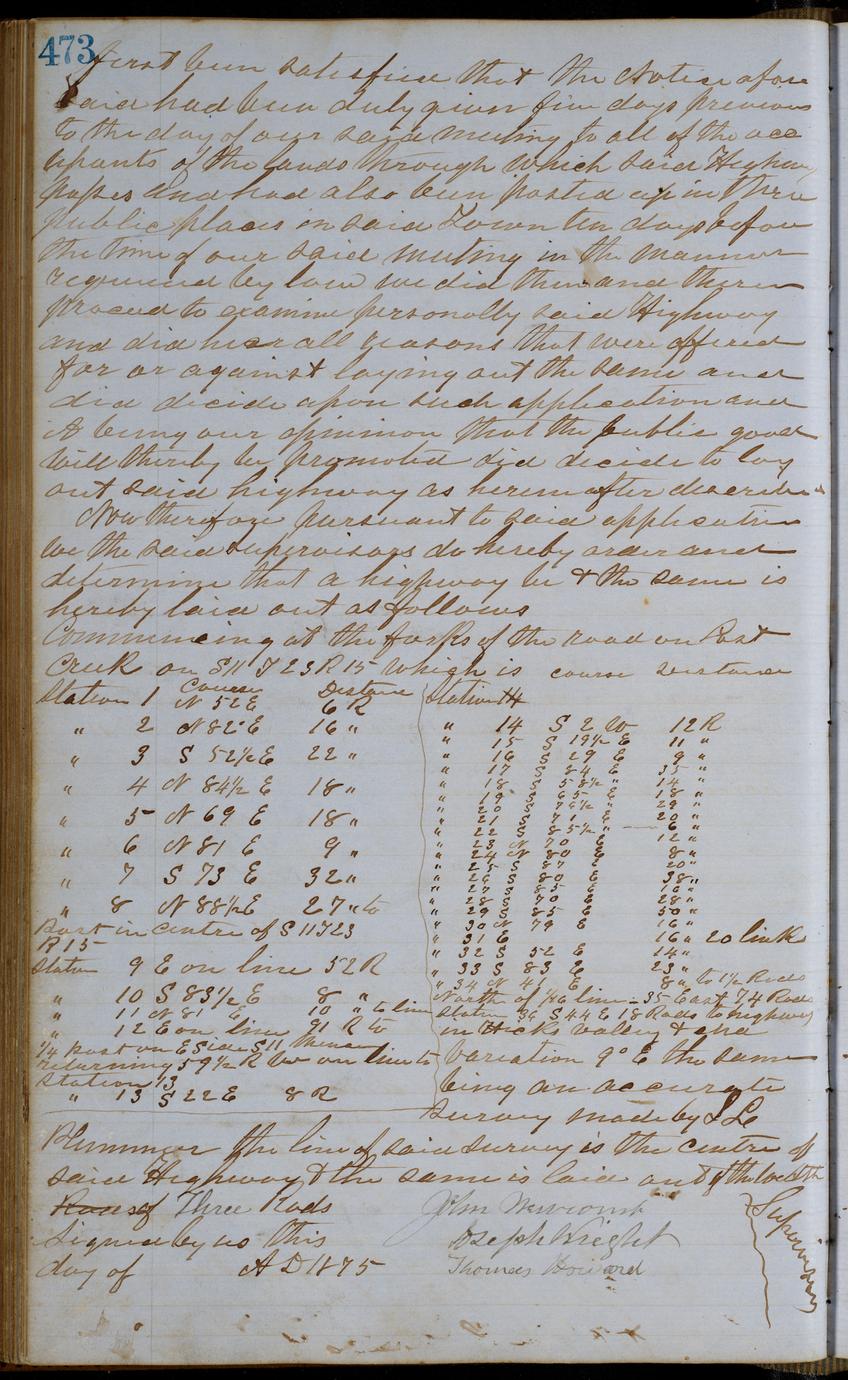 473
first been satisfied that the Notice afore
said had been duly given five days previous
to the day of our said meeting to all of the occ
upants of the lands through which said Highway
passes and had also been posted up in three
public places in said Town ten days before
the time of our said meeting in the manner
required by law we did then and there
proceed to examine personally said Highway
and did hear all reasons that were offered
for or against laying out the same and
did decide upon such application and
it being our opinion that the public good
will thereby be promoted did decide to lay
out said highway as herein after described
Now therefore pursuant to said application
we the said supervisors do hereby order and
determine that a highway be & the same is
hereby laid out as follows
Commencing at the forks of the road on
Creek on S 11 T 23 R 15 which is course distance
Station 1 Course N 52 E Distance 6 R
" 2 N 82 E 16 "
" 3 S 52½ E 22 "
" 4 N 84½ E 18 "
" 5 N 69 E 18 "
" 6 N 81 E 9 "
" 7 S 73 E 32 "
" 8 N 88½ E 27 " to
Post in centre of S 11 T 23
R 15
Station 9 E on line 52 R
" 10 S 83½ E 8 "
" 11 N 81 E 10 " to line
" 12 E on line 91 R to
¼ post on E side S 11 thence
returning 59½ R W on line to
Station 13
" 13 S 22 E 8 R
Station 14
" 14 S 2 W 12 R
" 15 S 19½ E 11 "
" 16 S 29 E 9 "
" 17 S 84 E 35 "
" 18 S 58½ " 14 "
" 19 S 65 E 18 "
" 20 S 76½ " 29 "
" 21 S 71 E 20 "
" 22 S 85½ " 6 "
" 23 N 70 12 "
" 24 N 80 E 8 "
" 25 S 87 20 "
" 26 S 80 E 38 "
" 27 S 85 E 16 "
" 28 S 70 E 28 "
" 29 S 85 E 50 "
" 30 N 79 E 16 "
" 31 E 16 " 20 links
" 32 S 52 E 14 "
" 33 S 83 E 23 "
" 34 N 41 E 8 " to 1½ Rods
North of 1/16 line - 35 East 74 Rods
Station 36 S 44 E 18 Rods to highway
in Hicks Valley & and
variation 9° E the same
being an accurate
survey made by
Plummer the line of said survey is the centre of
said Highway & the same is laid out of the width
of Three Rods
Signed by us this
day of A D 1875
John Newcomb
Joseph Wright
Thomas Howard
Supervisors